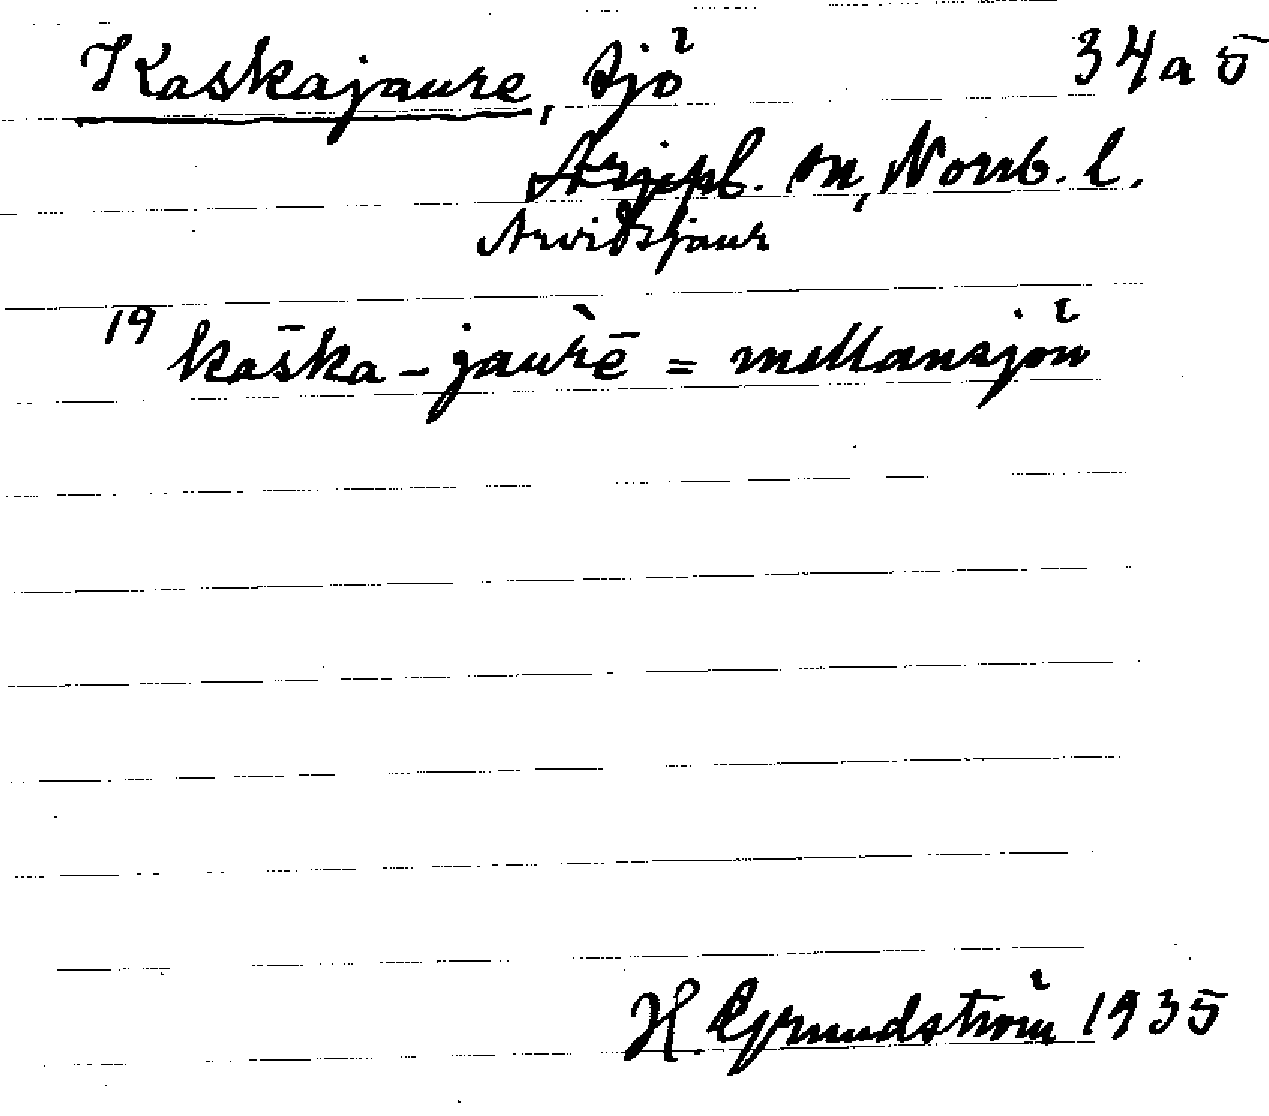 Kaskajaure, sjö 34a5
Arjepl. sn, Norrb. l.
Arvidsjaur
19 kas̄ka-jau̔rē = mellansjön
H. Grundström 1935